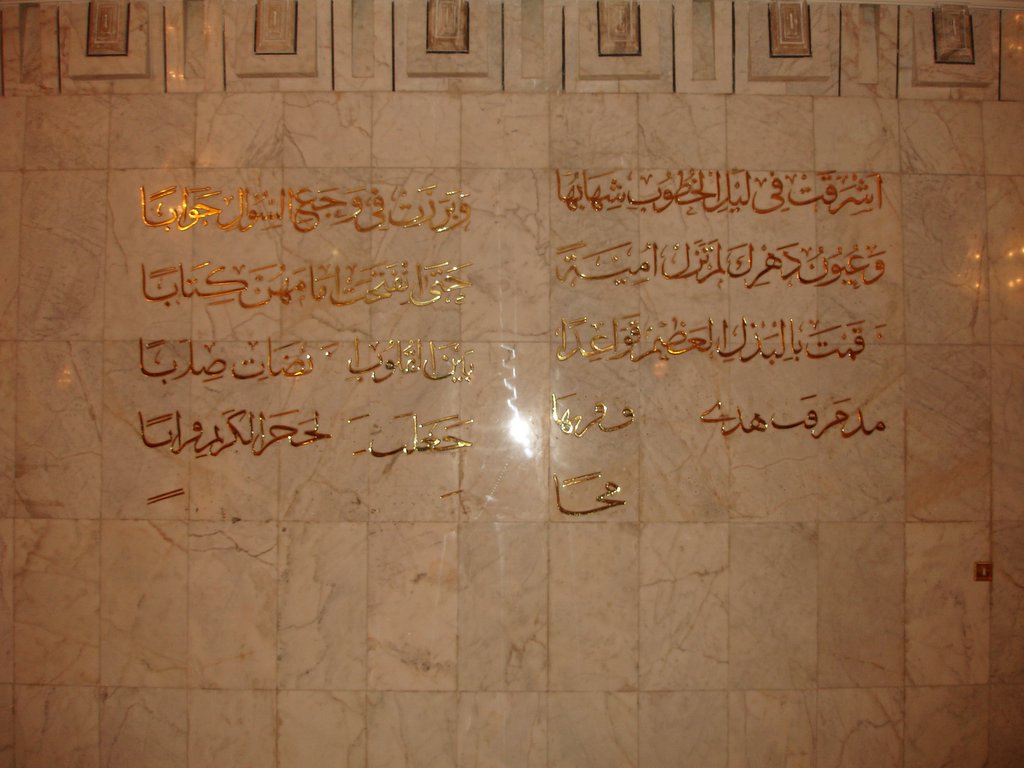 اشرقت في ليل الخطوب شهابها
وبرزت في وجع السؤل جوابا
وعيون دهرك لم تزل امينة
حتى انفتحت امامهن كتابا
قمت بالبذل العظيم قواعدا
بين القلوب نضات صلابا
هدي وربها
جعلت لحجر الكريم قرابا
محا